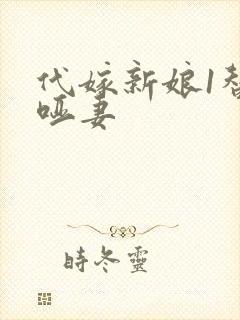 代嫁新娘1替
哑妻
時冬靈